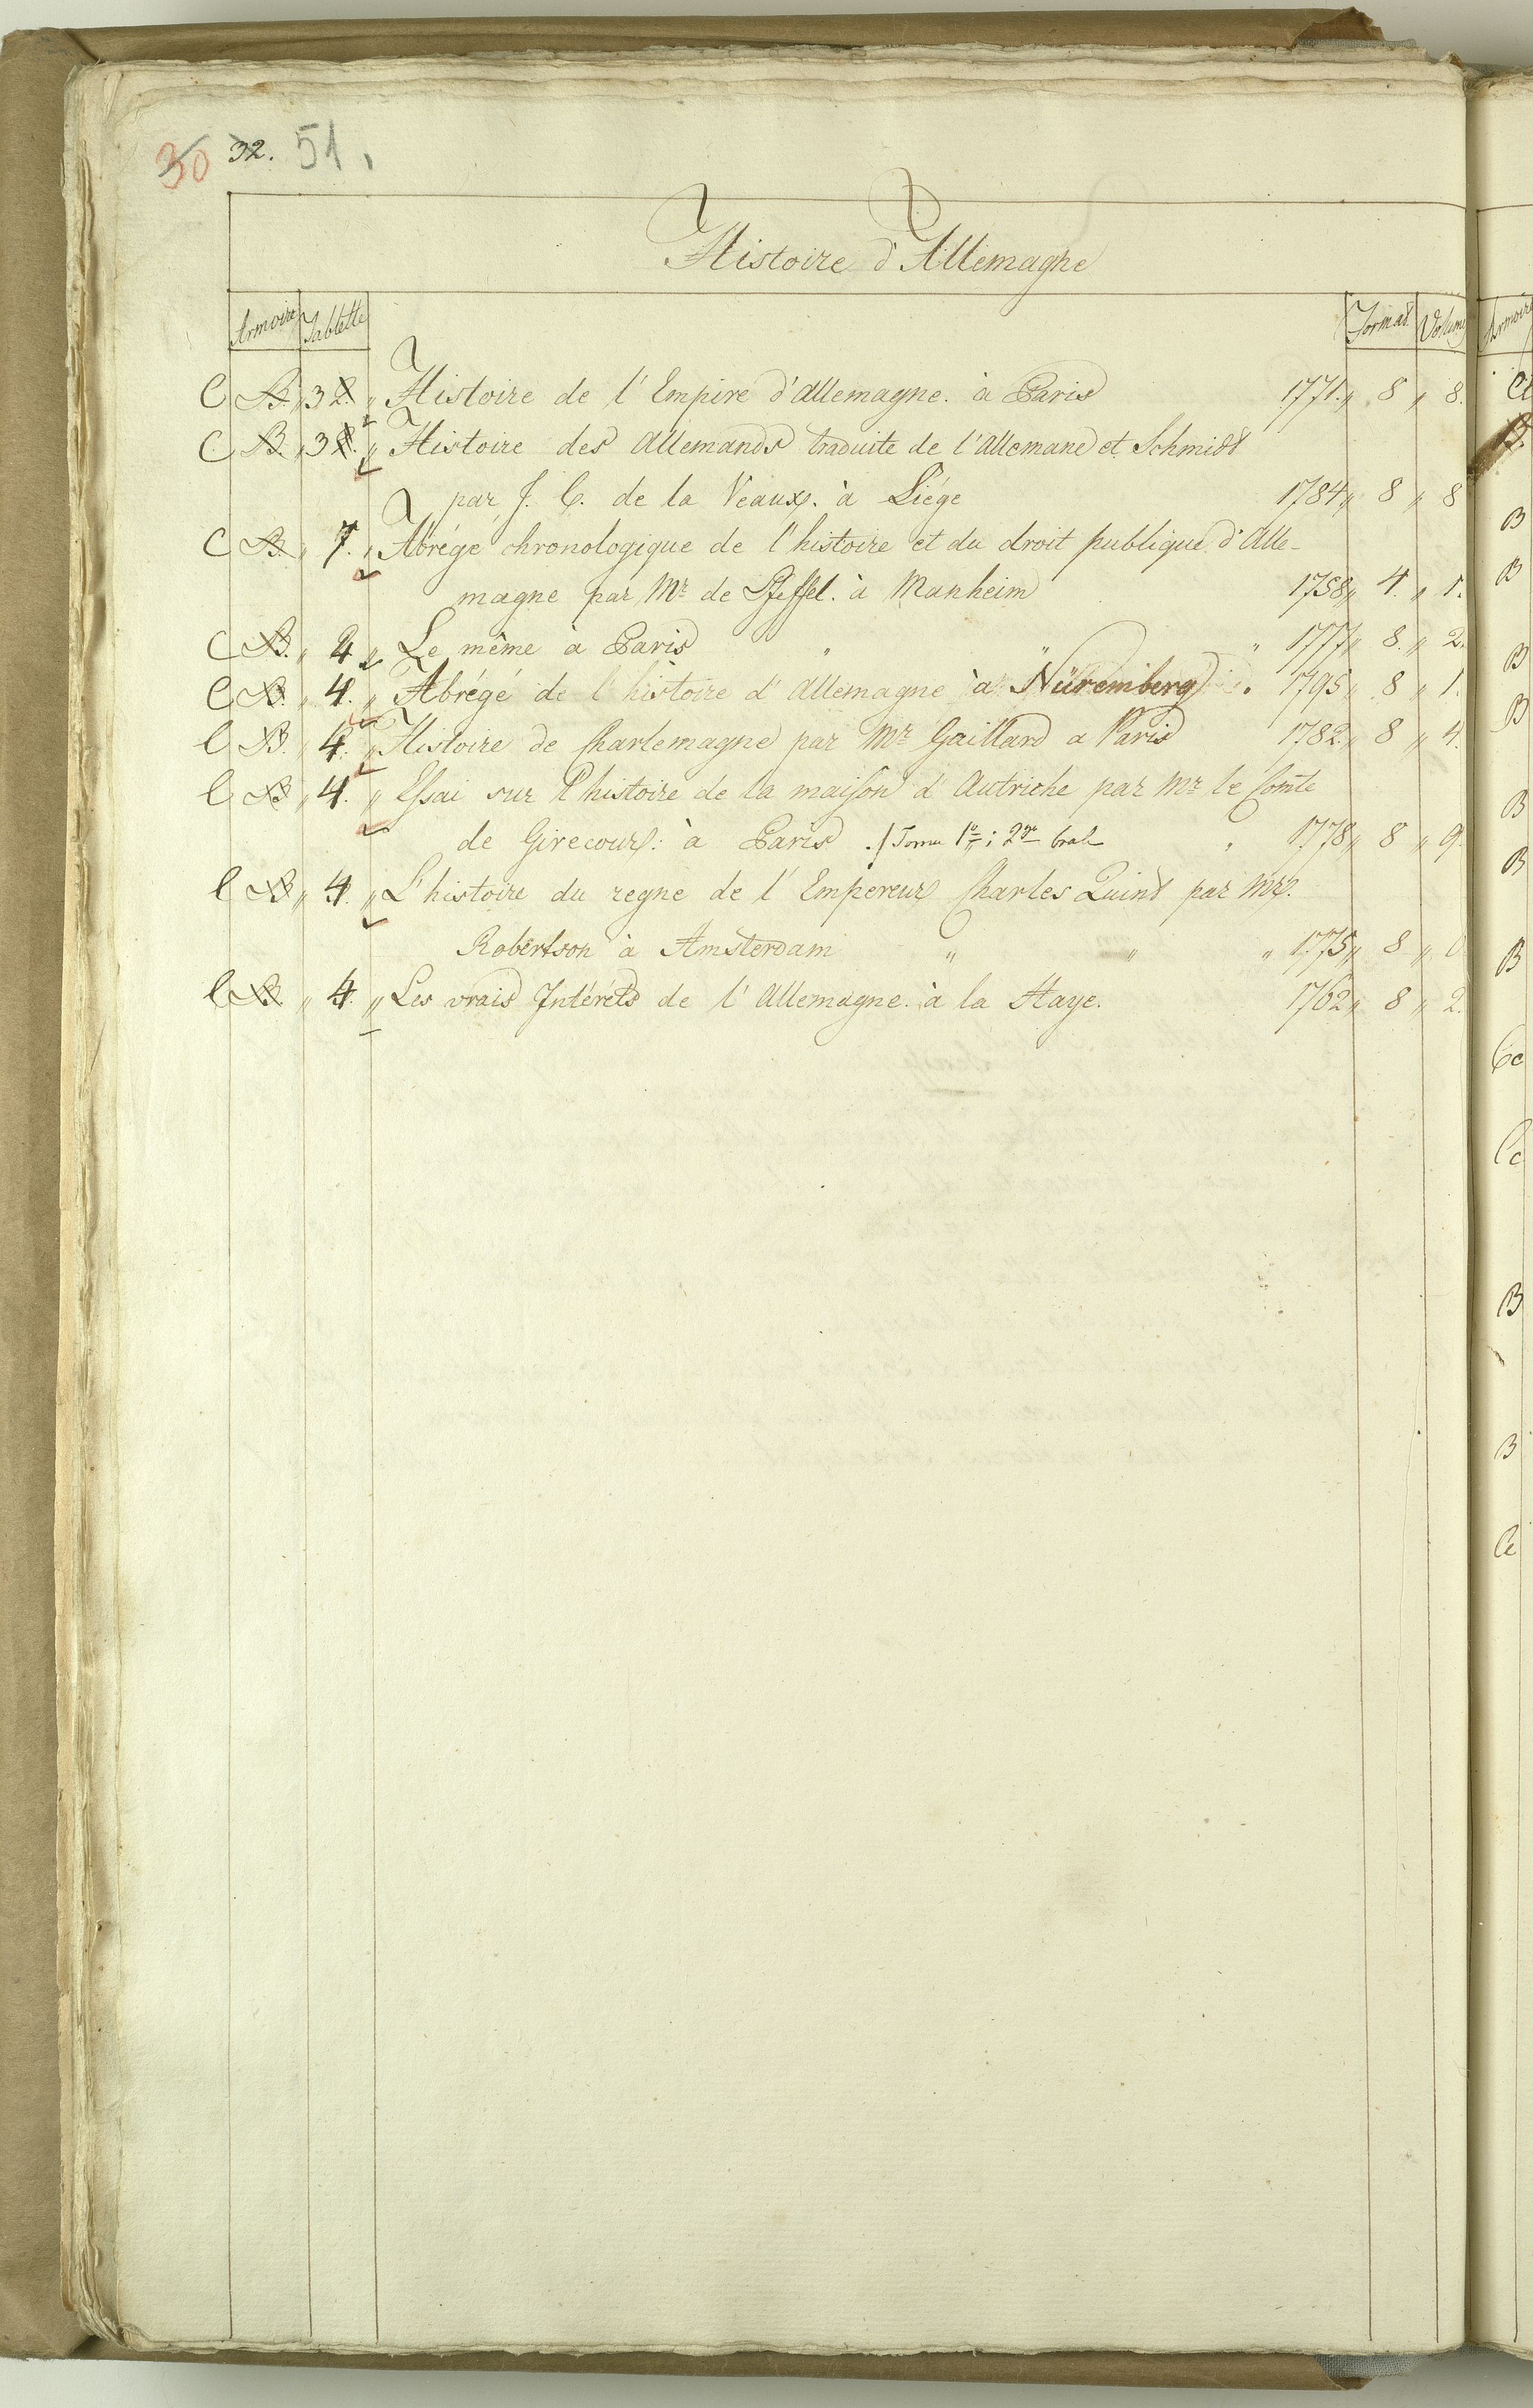 30 32. 51.
Histoire d'Allemagne
Armoire Tablette Format Volume
C B. „ 32. „ Histoire de l'Empire d'Allemagne. à Paris 1771. „ 8 „ 8.
C B. „ 3 „ Histoire des Allemands traduite de l'Allemane et Schmidt
par J. C. de la Veaux. à Liége 1784 „ 8 „ 8
C B. „ 7. „ Abrégé chronologique de l'histoire et du droit publique d'Alle-
magne par Mr de Pfeffel. à Manheim 1758 „ 4. „ 1.
C B. „ 4 „ Le même à Paris „ „ „ 1777 „ 8. „ 2.
C B. „ 4. „ Abrégé de l'histoire d'Allemagne à Nüremberg 1795 „ 8 „ 1.
C B. „ 4. „ Histoire de Charlemagne par Mr Gaillard a Paris 1782. „ 8 „ 4.
C B „ 4. „ Essai sur l'histoire de la maison d'Autriche par Mr le Comte
de Girecourt: à Paris ./ Tomu 1o i 2go brak „ 1778 „ 8 „ 9.
C B „ 4. „ L'histoire du regne de l'Empereur Charles Quint par Mr.
Robertson à Amsterdam „ „ „ 1775 „ 8 „
C B. „ 4. „ Les vrais Intérêts de l'Allemagne. à la Haye. 1762 „ 8 „ 2.